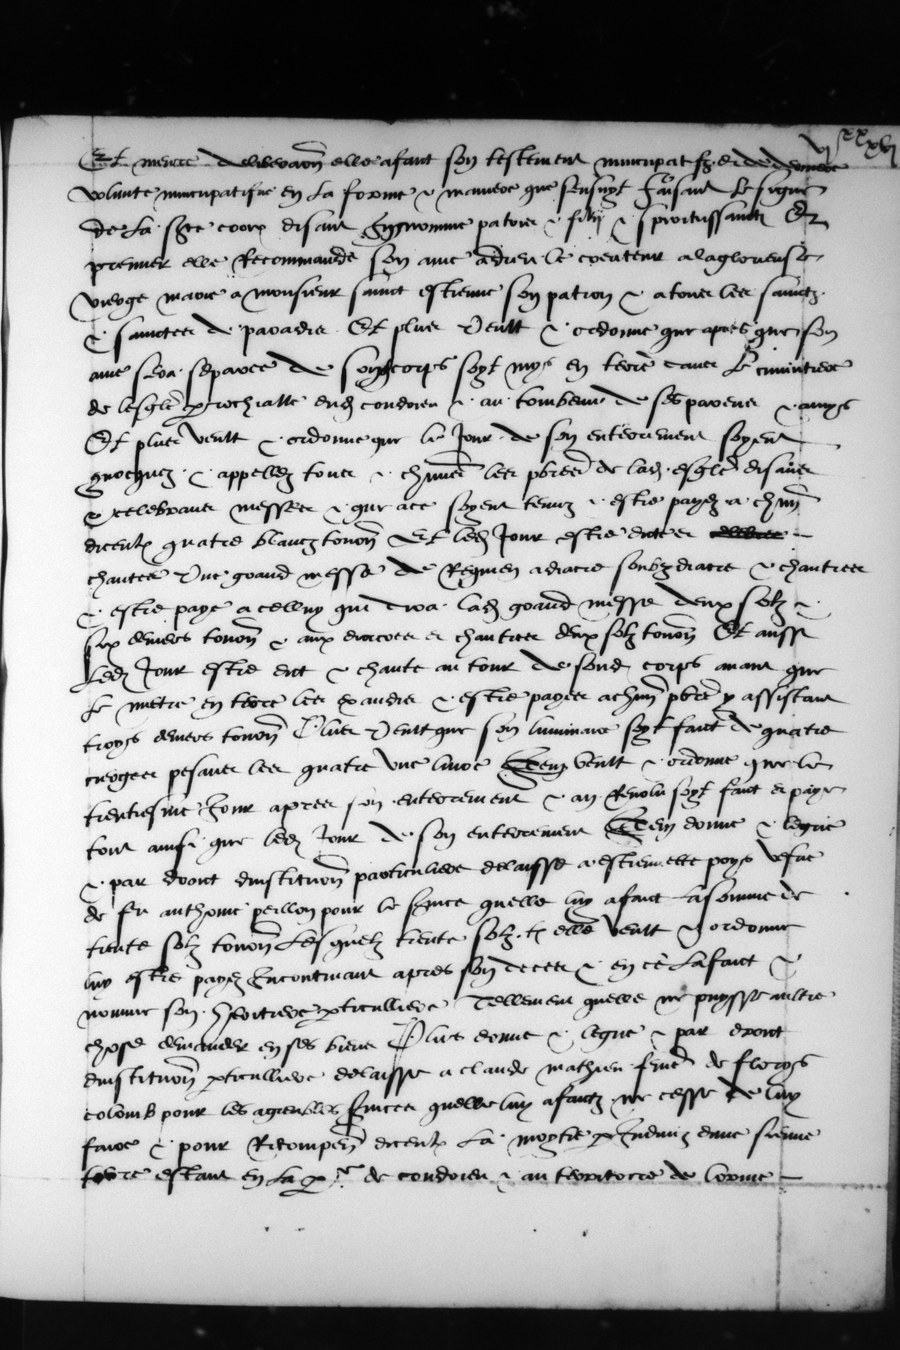 Et meure deliberaon elle a faict son testement nuncupatif et de derniere
volunte nuncupatifue en la forme & maniere que sensuyt faisant le signe
de la ste croix disant In nomine patris & filij & spiritussancti Et
premier elle Recommande son ame a dieu le createur a la glorieuse
vierge marie a monsieur sainct estienne son patron & a tous les sainctz
& sainctes de paradis Et plus veult & ordonne que apres que son
ame sera separee de son corps soyt mys en terre dans le cimintiere
de lesgle parrochialle dud condrieu & au tombeau de ses parens & amys
Et plus veult & ordonne que le Jour de son enterrement soyent
& appellez tous & chuns les pbres de lad esgle disans
& celebrans messes & que a ce soyent tenuz & estre paye a chun
diceulx quatre blanctz tourn Et led Jour estre dicte
chantee vne grand messe de Requien a diacre soubzdiacre & chantres
& estre paye a celluy qui dira lad grand messe deux solz &
six deniers tourn & aux diacres et chantres deux solz tourn Et ausse
led Jour estre dit & chante au tour de sond corps auant que
le metre en terre les exaudis & estre paye a chun pbre y assistant
troys deniers tourn Plus veult que son luminaire soyt faict de quatre
cierges pesans les quatre vne liure Item veult & ordonne que le
trentiesme Jour apres son enterrement & an Reuolu soyt faict et paye
tout ainsi que led Jour de son enterrement Item donne & legue
& par droict dinstituon particuliere delaisse a estiennette poys vefue
de feu anthoine peillon pour le seruice quelle luy a faict la somme de
trente solz tourn Lesquelz trente solz tz elle veult & ordonne
luy estre payez Incontinant apres son deces & en ce la faict &
nomme son heritiere particulliere Tellement quelle ne puysse aultre
chose demander en ses biens Plus donne & legue & par droict
dinstituon particulliere delaisse a claude mathieu feme de fleurys
colomb pour les agreables seruices quelle luy a faictz ne cesse de luy
faire & pour Recompen diceulx La moytie par Indiuiz dune sienne
terre estant en la de condrieu & au territoire de lorme